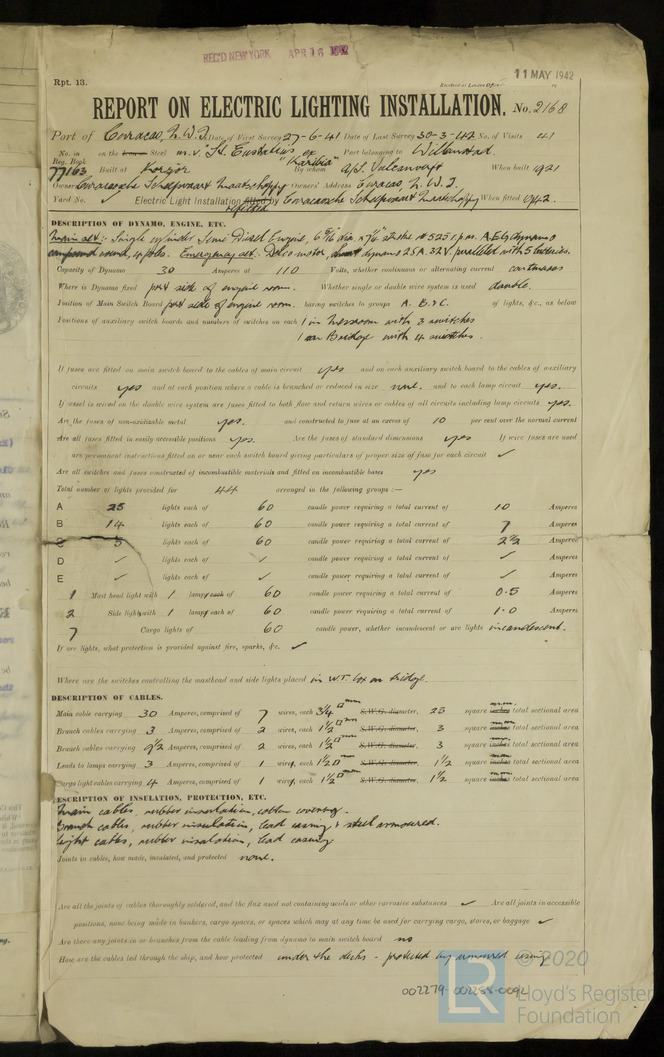 REC'D NEW YORK APR 16 1942
11 MAY 1942
Rpt. 13.
Received at London Office
REPORT ON ELECTRIC LIGHTING INSTALLATION. No. 2168
Port of Curacao, N.W.I. Date of First Survey 27-6-41 Date of Last Survey 30-3-42 No. of Visits 41
No. in Reg. Book 77163 on the Iron or Steel m.v. "St. Eustatius" ex "Karibia" Port belonging to Willemstad.
Built at Korsör By whom A/S. Vulcanverft When built 1921
Owners Curacaosche Scheepvaart Maatschappy Owners' Address Curacao, N.W.I.
Yard No. ✓ Electric Light Installation fitted by Curacaosche Scheepvaart Maatschappy When fitted 1942.
DESCRIPTION OF DYNAMO, ENGINE, ETC.
Main set:- Single cylinder Semi Diesel Engine, dia x 7⅞" stroke
compound wound, 4 poles. Emergency set: Delco motor dynamo 25A. 32V. paralleled with 5 batteries.
Capacity of Dynamo 30 Amperes at 110 Volts, whether continuous or alternating current continuous
Where is Dynamo fixed port side of engine room. Whether single or double wire system is used double.
Position of Main Switch Board port side of engine room. having switches to groups A. B & C. of lights, &c., as below
Positions of auxiliary switch boards and numbers of switches on each 1 in Messroom with 3 switches
1 on Bridge with 4 switches.
If fuses are fitted on main switch board to the cables of main circuit yes and on each auxiliary switch board to the cables of auxiliary
circuits yes and at each position where a cable is branched or reduced in size none. and to each lamp circuit yes.
If vessel is wired on the double wire system are fuses fitted to both flow and return wires or cables of all circuits including lamp circuits yes.
Are the fuses of non-oxidizable metal yes. and constructed to fuse at an excess of 10 per cent over the normal current
Are all fuses fitted in easily accessible positions yes. Are the fuses of standard dimensions yes If wire fuses are used
are permanent instructions fitted on or near each switch board giving particulars of proper size of fuse for each circuit ✓
Are all switches and fuses constructed of incombustible materials and fitted on incombustible bases yes
Total number of lights provided for 44 arranged in the following groups :—
A 25 lights each of 60 candle power requiring a total current of 10 Amperes
B 14 lights each of 60 candle power requiring a total current of 7 Amperes
C 5 lights each of 60 candle power requiring a total current of 2½ Amperes
D ✓ lights each of ✓ candle power requiring a total current of ✓ Amperes
E ✓ lights each of ✓ candle power requiring a total current of ✓ Amperes
1 Mast head light with 1 lamp each of 60 candle power requiring a total current of 0.5 Amperes
2 Side light with 1 lamp each of 60 candle power requiring a total current of 1.0 Amperes
7 Cargo lights of 60 candle power, whether incandescent or arc lights incandescent.
If arc lights, what protection is provided against fire, sparks, &c. ✓
Where are the switches controlling the masthead and side lights placed in W.T. box on bridge.
DESCRIPTION OF CABLES.
Main cable carrying 30 Amperes, comprised of 7 wires, each S.W.G. diameter, 25 square inches m.m. total sectional area
Branch cables carrying 3 Amperes, comprised of 2 wires, each 1½ □mm S.W.G. diameter, 3 square inches m.m. total sectional area
Branch cables carrying 2½ Amperes, comprised of 2 wires, each 1½ □mm S.W.G. diameter, 3 square inches m.m. total sectional area
Leads to lamps carrying 3 Amperes, comprised of 1 wires, each 1½ □mm S.W.G. diameter, 1½ square inches m.m. total sectional area
Cargo light cables carrying 4 Amperes, comprised of 1 wires, each 1½ □mm S.W.G. diameter, 1½ square inches m.m. total sectional area
DESCRIPTION OF INSULATION, PROTECTION, ETC.
Main cables, rubber insulation, cotton covering.
Branch cables, rubber insulation, lead casing & steel armoured.
Light cables, rubber insulation, lead casing
Joints in cables, how made, insulated, and protected none.
Are all the joints of cables thoroughly soldered, and the flux used not containing acids or other corrosive substances ✓ Are all joints in accessible
positions, none being made in bunkers, cargo spaces, or spaces which may at any time be used for carrying cargo, stores, or baggage ✓
Are there any joints in or branches from the cable leading from dynamo to main switch board no
How are the cables led through the ship, and how protected under the decks - protected by armoured casing
002279-002288-0092
© 2020
LR
Lloyd's Register
Foundation